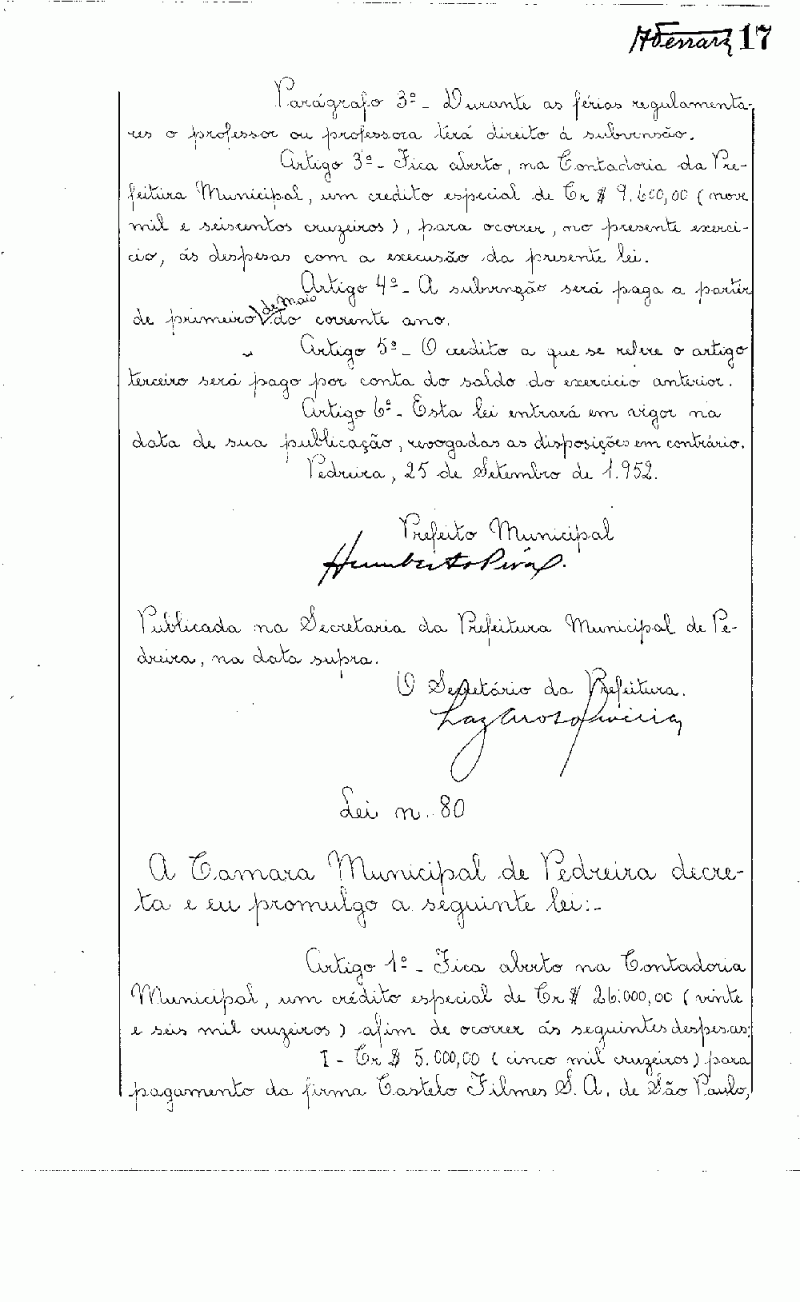 17
Parágrafo 3º - Durante as férias regulamenta-
res o professor ou professora terá direito à subvensão.
Artigo 3º - Fica aberto, na Contadoria da Pre-
feitura Municipal, um credito especial de Cr $ 9.600,00 (nove
mil e seiscentos cruzeiros), para ocorrer, no presente exerci-
cio, ás despesas com a execusão da presente lei.
Artigo 4º - A subvnção será paga a partir
de primeiro de Maio do corrente ano.
Artigo 5º - O credito a que se refere o artigo
terceiro será pago por conta do saldo do exercicio anterior.
Artigo 6º - Esta lei entrará em vigor na
data de sua publicação, revogadas as disposições em contrário.
Pedreira, 25 de Setembro de 1.952.
Prefeito Municipal
Humberto Piva.
Publicada na Secretaria da Prefeitura Municipal de Pe-
dreira, na data supra.
O Secretário da Prefeitura.
Lei n. 80
A Camara Municipal de Pedreira decre-
ta e eu promulgo a seguinte lei:-
Artigo 1º - Fica aberto na Contadoria
Municipal, um crédito especial de Cr $ 26.000,00 (vinte
e seis mil cruzeiros) afim de ocorrer ás seguintes despesas:
I - Cr $ 5.000,00 (cinco mil cruzeiros) para
pagamento da firma Castelo Filmes S. A. de São Paulo,